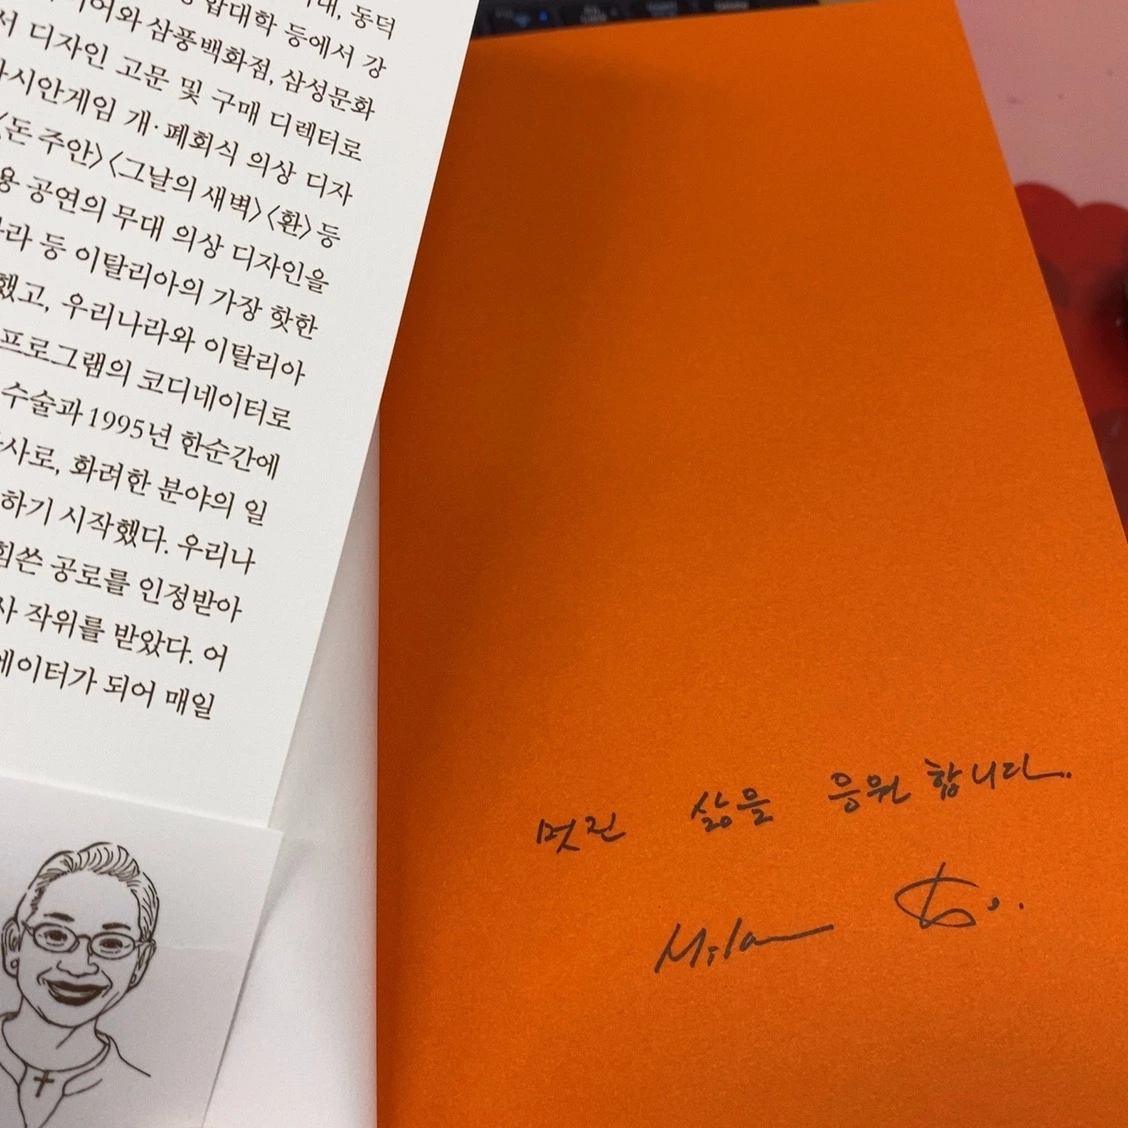 동덕
합대학 등에서 강
어와 삼풍백화점, 삼성문화
디자인 고문 및 구매 디렉터로
아시안게임 개·폐회식 의상 디자
〈돈 주안〉〈그날의 새벽〉〈환〉 등
공연의 무대 의상 디자인을
라 등 이탈리아의 가장 핫한
했고, 우리나라와 이탈리아
프로그램의 코디네이터로
수술과 1995년 한순간에
사로, 화려한 분야의 일
하기 시작했다. 우리나
힘쓴 공로를 인정받아
작위를 받았다. 어
에이터가 되어 매일
멋진 삶을 응원합니다.
Milan